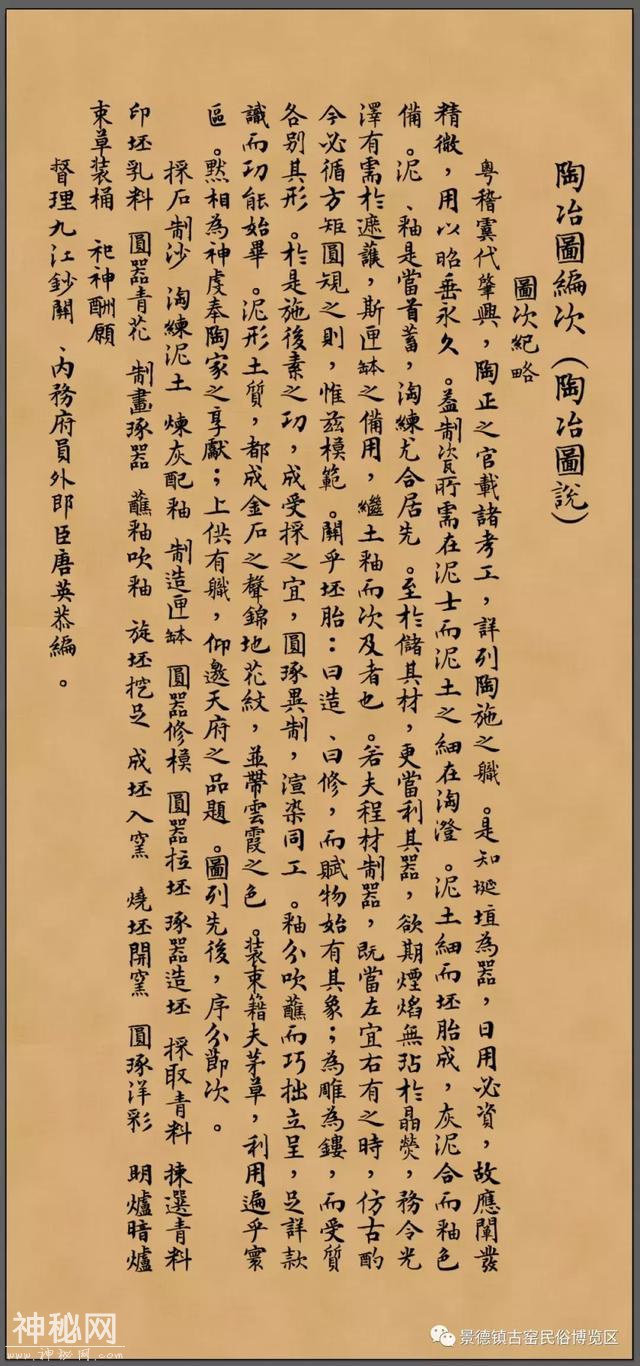 陶冶圖編次（陶冶圖說）
圖次紀略
粵稽虞代肇興，陶正之官載諸考工，詳列陶旊之職。是知埏埴為器，日用必資，故應闡發
精微，用以昭垂永久。蓋制瓷所需在泥土而泥土之細在淘澄。泥土細而坯胎成，灰泥合而釉色
備。泥、釉是當首蓄，淘練尤合居先。至於儲其材，更當利其器，欲期煙焰無玷於晶熒，務令光
澤有需於遮護，斯匣缽之備用，繼土釉而次及者也。若夫程材制器，既當左宜右有之時，仿古酌
今必循方矩圓規之則，惟茲模範。關乎坯胎：曰造、曰修，而賦物始有其象；為雕為鏤，而受質
各別其形。於是施後素之功，成受採之宜，圓琢異制，渲染同工。釉分吹蘸而巧拙立呈，足詳款
識而功能始畢。泥形土質，都成金石之聲錦地花紋，並帶雲霞之色。裝束籍夫茅草，利用遍乎寰
區。黙相為神虔奉陶家之享獻；上供有職，仰邀天府之品題。圖列先後，序分節次。
採石制沙 淘練泥土 煉灰配釉 制造匣缽 圓器修模 圓器拉坯 琢器造坯 採取青料 揀選青料
印坯乳料 圓器青花 制畫琢器 蘸釉吹釉 旋坯挖足 成坯入窯 燒坯開窯 圓琢洋彩 明爐暗爐
束草裝桶 祀神酬願
督理九江鈔關、內務府員外郎臣唐英恭編。
神秘网
www.神秘网.com
景德镇古窑民俗博览区